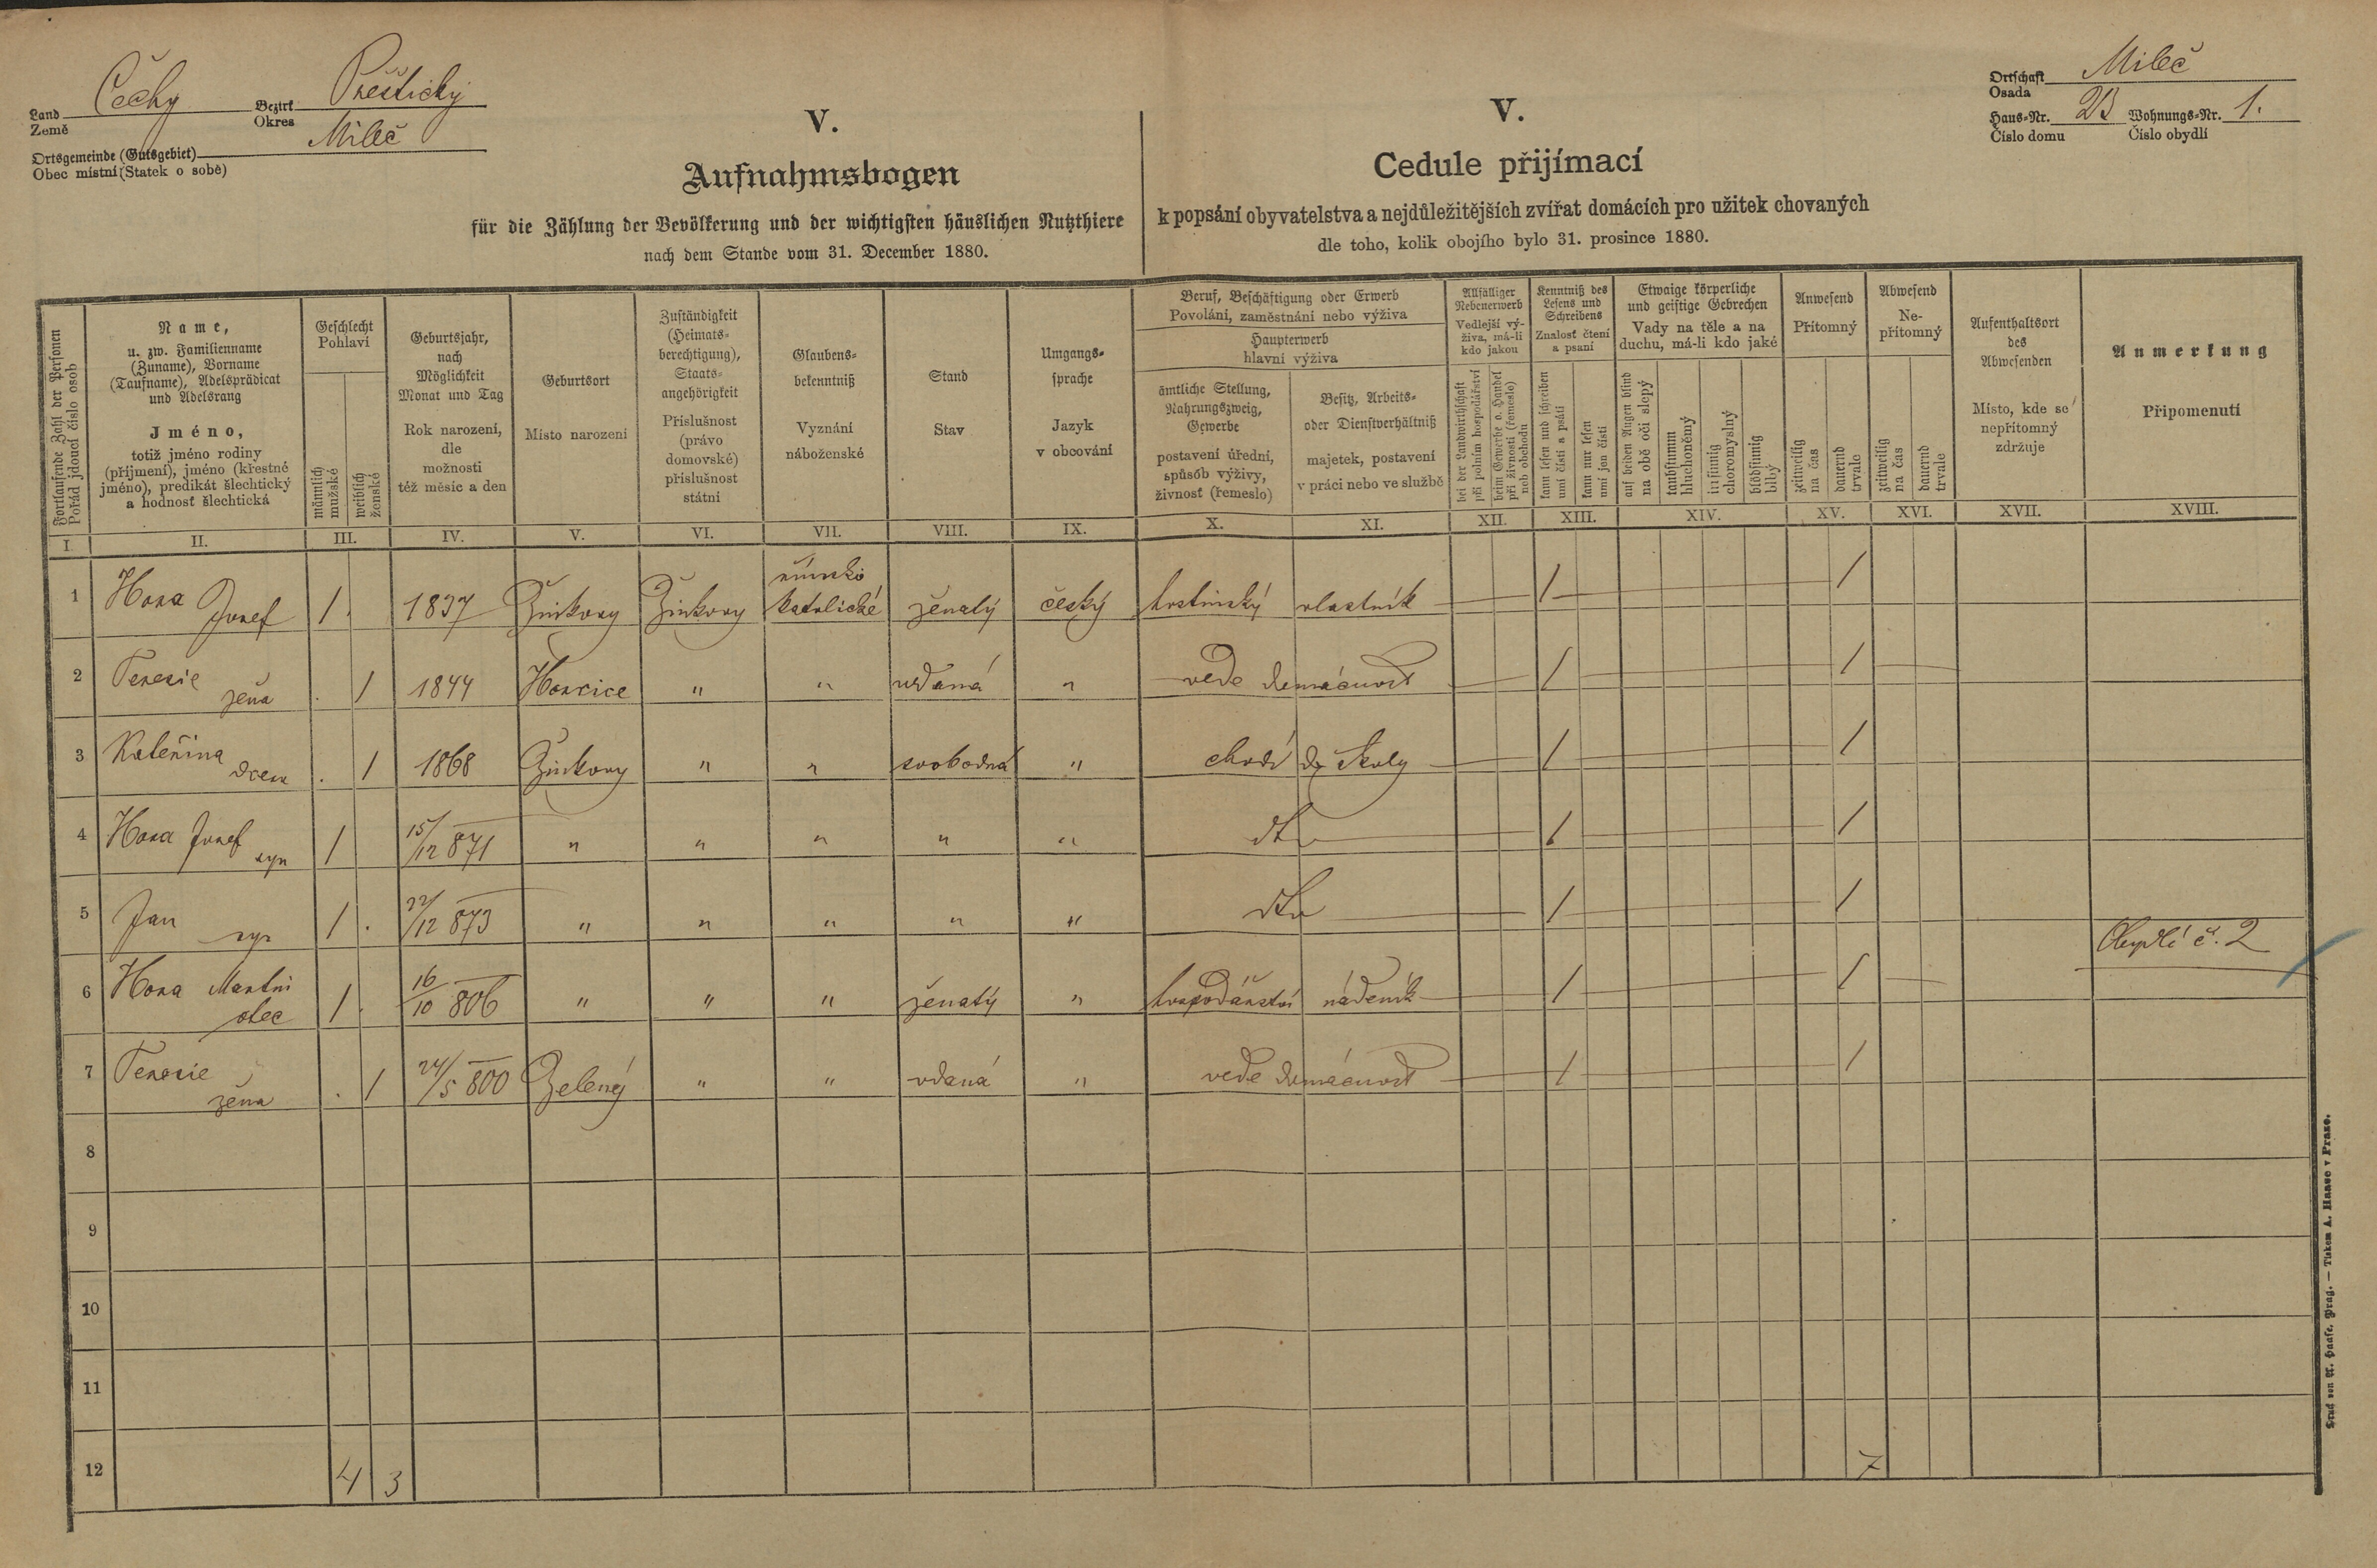 Land Čechy Bezirk Přeštický
Země Okres
Ortsgemeinde (Gutsgebiet) Mileč
Obec místní (Statek o sobě)
Ortschaft Mileč
Osada
Haus-Nr. 23 Wohnungs-Nr. 1.
Číslo domu Číslo obydlí
V.
Aufnahmsbogen
für die Zählung der Bevölkerung und der wichtigsten häuslichen Nutzthiere
nach dem Stande vom 31. December 1880.
V.
Cedule přijímací
k popsání obyvatelstva a nejdůležitějších zvířat domácích pro užitek chovaných
dle toho, kolik obojího bylo 31. prosince 1880.
Fortlaufende Zahl der Personen
Pořád jdoucí číslo osob
Name,
u. zw. Familienname
(Zuname), Vorname
(Taufname), Adelsprädicat
und Adelsrang
Jméno,
totiž jméno rodiny
(příjmení), jméno (křestné
jméno), predikát šlechtický
a hodnosť šlechtická
Geschlecht
Pohlaví
männlich
mužské
weiblich
ženské
Geburtsjahr,
nach
Möglichkeit
Monat und Tag
Rok narození,
dle
možnosti
též měsíc a den
Geburtsort
Místo narození
Zuständigkeit
(Heimats-
berechtigung),
Staats-
angehörigkeit
Příslušnost
(právo
domovské)
příslušnost
státní
Glaubens-
bekenntniß
Vyznání
náboženské
Stand
Stav
Umgangs-
sprache
Jazyk
v obcování
Beruf, Beschäftigung oder Erwerb
Povolání, zaměstnání nebo výživa
Haupterwerb
hlavní výživa
ämtliche Stellung,
Nahrungszweig,
Gewerbe
postavení úřední,
spůsôb výživy,
živnosť (řemeslo)
Besitz, Arbeits-
oder Dienstverhältniß
majetek, postavení
v práci nebo ve službě
Allfälliger
Nebenerwerb
Vedlejší vý-
živa, má-li
kdo jakou
bei der Landwirthschaft
při polním hospodářství
beim Gewerbe o. Handel
při živnosti (řemesle)
neb obchodu
Kenntniß des
Lesens und
Schreibens
Znalosť čtení
a psaní
kann lesen und schreiben
umí čísti a psáti
kann nur lesen
umí jen čísti
Etwaige körperliche
und geistige Gebrechen
Vady na těle a na
duchu, má-li kdo jaké
auf beiden Augen blind
na obě oči slepý
taubstumm
hluchoněmý
irrsinnig
choromyslný
blödsinnig
blbý
Anwesend
Přítomný
zeitweilig
na čas
dauernd
trvale
Abwesend
Ne-
přítomný
zeitweilig
na čas
dauernd
trvale
Aufenthaltsort
des
Abwesenden
Místo, kde se
nepřítomný
zdržuje
Anmerkung
Připomenutí
I. II. III. IV. V. VI. VII. VIII. IX. X. XI. XII. XIII. XIV. XV. XVI. XVII. XVIII.
římsko
1 Hora Josef 1 . 1837 Žinkovy Žinkovy katolické ženatý český hostinský vlastník 1 1
2 Terezie žena . 1 1844 Horčice " " vdaná " vede domácnost 1 1
3 Kateřina dcera . 1 1868 Žinkovy " " svobodná " chodí do školy 1 1
4 Hora Josef syn 1 15/12 871 " " " " " dto 1 1
5 Jan syn 1 . 22/12 873 " " " " " dto 1 1
Obydlí č. 2
6 Hora Martin otec 1 . 16/10 806 " " " ženatý " hospodářství nádeník 1 1
7 Terezie žena . 1 24/5 800 Zelený " " vdaná " vede domácnost 1 1
8
9
10
11
12 4 3 7
Druck von A. Haase, Prag. — Tiskem A. Haase v Praze.